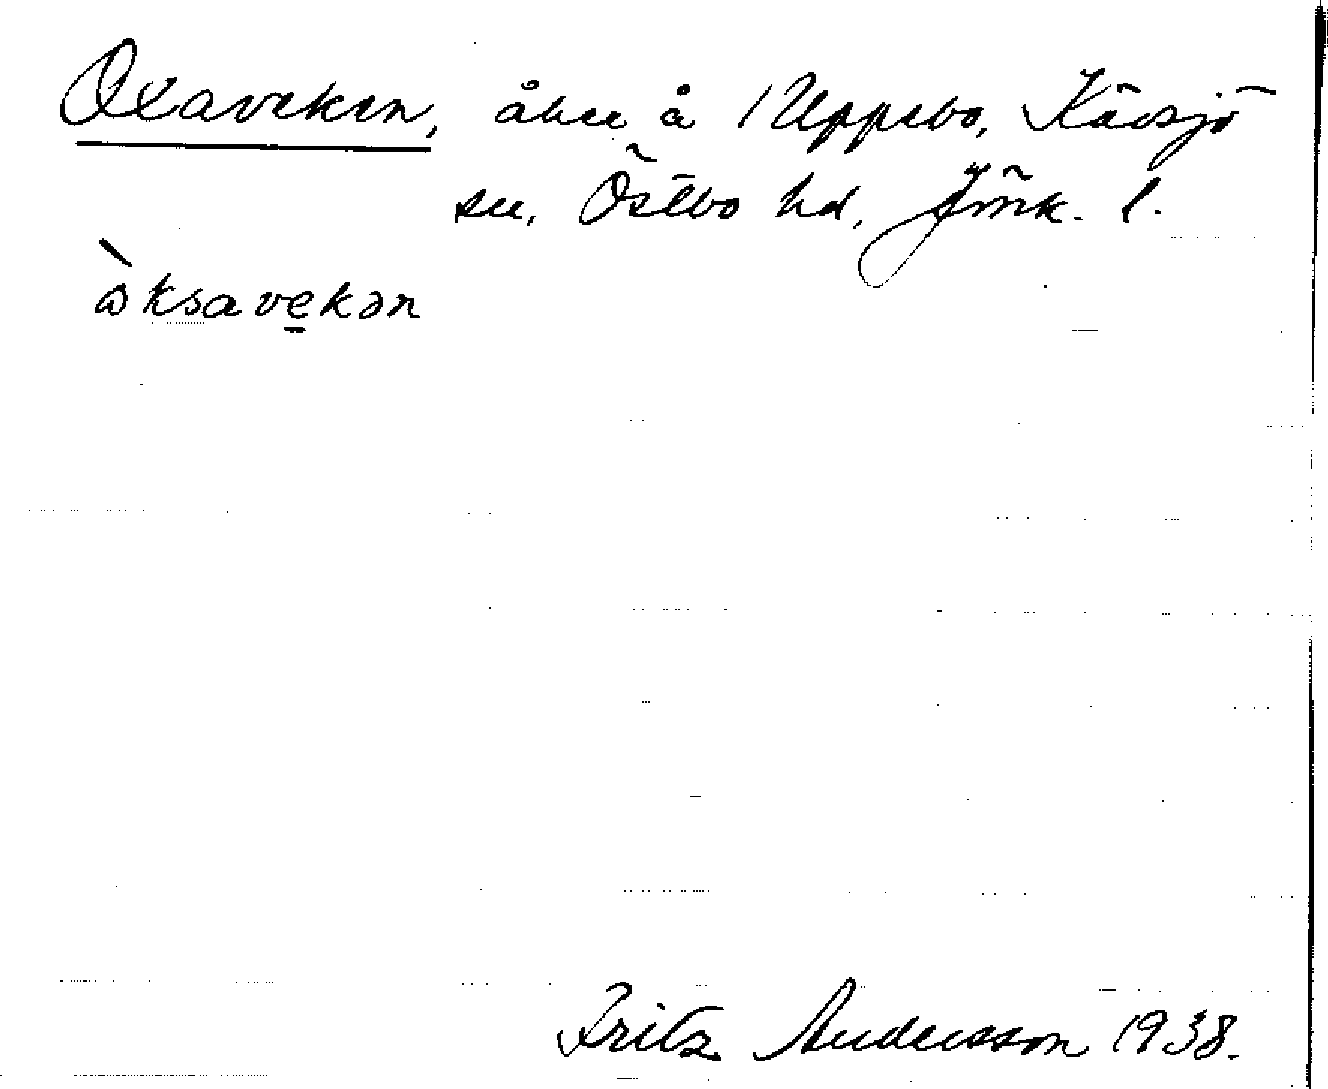 Oxaveken, åker å Uppebo, Kävsjö
sn, Östbo hd, Jönk. l.
ὼksavekən
Fritz Andersson 1938.